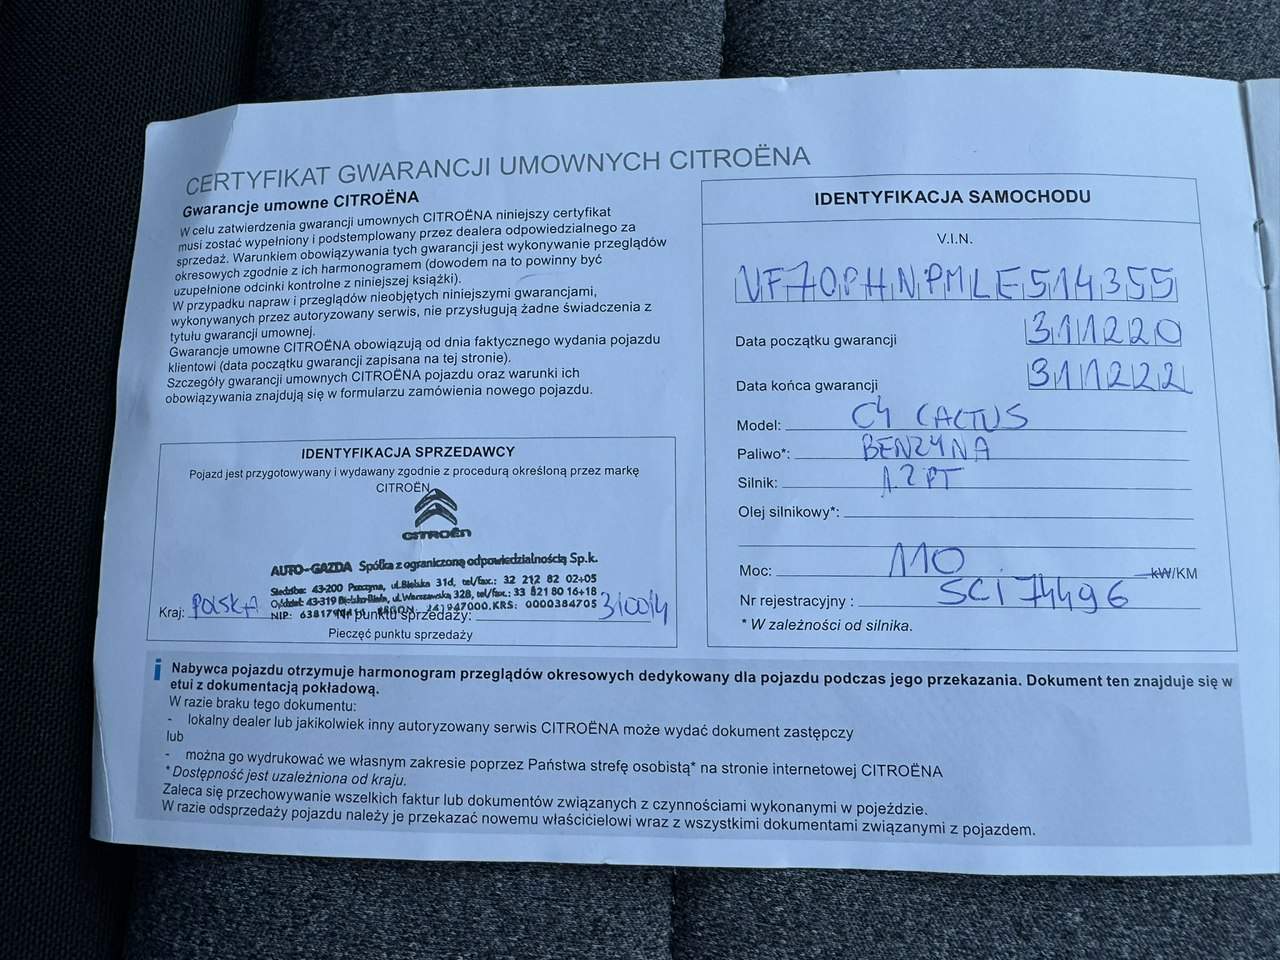 CERTYFIKAT GWARANCJI UMOWNYCH CITROËNA
Gwarancje umowne CITROËNA
W celu zatwierdzenia gwarancji umownych CITROËNA niniejszy certyfikat
musi zostać wypełniony i podstemplowany przez dealera odpowiedzialnego za
sprzedaż. Warunkiem obowiązywania tych gwarancji jest wykonywanie przeglądów
okresowych zgodnie z ich harmonogramem (dowodem na to powinny być
uzupełnione odcinki kontrolne z niniejszej książki).
W przypadku napraw i przeglądów nieobjętych niniejszymi gwarancjami,
wykonywanych przez autoryzowany serwis, nie przysługują żadne świadczenia z
tytułu gwarancji umownej.
Gwarancje umowne CITROËNA obowiązują od dnia faktycznego wydania pojazdu
klientowi (data początku gwarancji zapisana na tej stronie).
Szczegóły gwarancji umownych CITROËNA pojazdu oraz warunki ich
obowiązywania znajdują się w formularzu zamówienia nowego pojazdu.
IDENTYFIKACJA SPRZEDAWCY
Pojazd jest przygotowywany i wydawany zgodnie z procedurą określoną przez markę
CITROËN
CITROËN
AUTO-GAZDA Spółka z ograniczoną odpowiedzialnością Sp.k.
Siedziba: 43-200 Pszczyna, ul.Bielska 31d, tel/fax.: 32 212 82 02+05
Oddział: 43-319 Bielsko-Biała, ul.Warszawska 328, tel./fax.: 33 821 80 16+18
NIP: 241947000, KRS: 0000384705
Kraj: POLSKA Nr punktu sprzedaży: 310014
Pieczęć punktu sprzedaży
IDENTYFIKACJA SAMOCHODU
V.I.N.
VF70PHNPMLE514355
Data początku gwarancji 311220
Data końca gwarancji 311222
Model: C4 CACTUS
Paliwo*: BENZYNA
Silnik: 1.2 PT
Olej silnikowy*:
Moc: 110 kW/KM
Nr rejestracyjny : SCI74496
* W zależności od silnika.
i Nabywca pojazdu otrzymuje harmonogram przeglądów okresowych dedykowany dla pojazdu podczas jego przekazania. Dokument ten znajduje się w
etui z dokumentacją pokładową.
W razie braku tego dokumentu:
- lokalny dealer lub jakikolwiek inny autoryzowany serwis CITROËNA może wydać dokument zastępczy
lub
- można go wydrukować we własnym zakresie poprzez Państwa strefę osobistą* na stronie internetowej CITROËNA
* Dostępność jest uzależniona od kraju.
Zaleca się przechowywanie wszelkich faktur lub dokumentów związanych z czynnościami wykonanymi w pojeździe.
W razie odsprzedaży pojazdu należy je przekazać nowemu właścicielowi wraz z wszystkimi dokumentami związanymi z pojazdem.